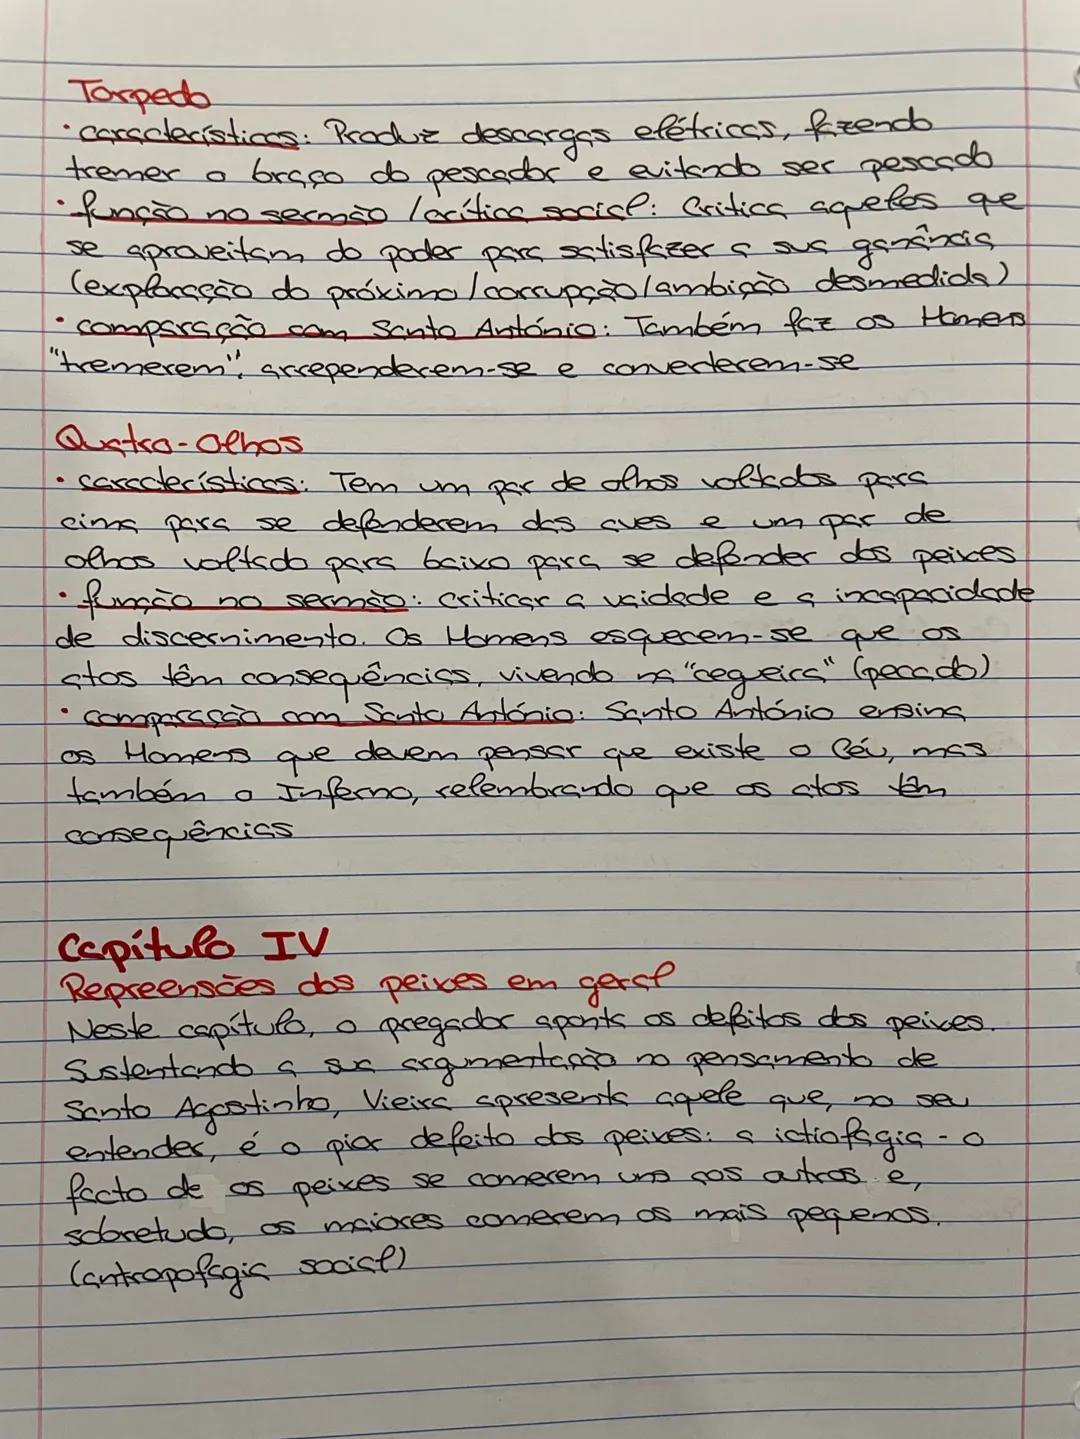 Torpedo
· características: Produz descargas elétricas, fazendo
tremer o braço do pescador e evitando ser pescado
· função no sermão / crítica social: Critica aqueles que
se aproveitam do poder para satisfazer a sua ganância
(exploração do próximo/corrupção/ambição desmedida)
· comparação com Santo António: Também faz os Homens
"tremerem", arrependerem-se e converterem-se
Quatro-Olhos
· características: Tem um par de olhos voltados para
cima para se defenderem das aves e um par de
olhos voltado para baixo para se defender dos peixes
· função no sermão: criticar a vaidade e a incapacidade
de discernimento. Os Homens esquecem-se que os
atos têm consequências, vivendo na "cegueira" (pecado)
· comparação com Santo António: Santo António ensina
os Homens que devem pensar que existe o Céu, mas
também o Inferno, relembrando que os atos têm
consequências
Capítulo IV
Repreensões dos peixes em geral
Neste capítulo, o pregador aponta os defeitos dos peixes.
Sustentando a sua argumentação no pensamento de
Santo Agostinho, Vieira apresenta aquele que, no seu
entender, é o pior defeito dos peixes: a ictiofagia - o
facto de os peixes se comerem uns aos outros e,
sobretudo, os maiores comerem os mais pequenos.
(antropofagia social)